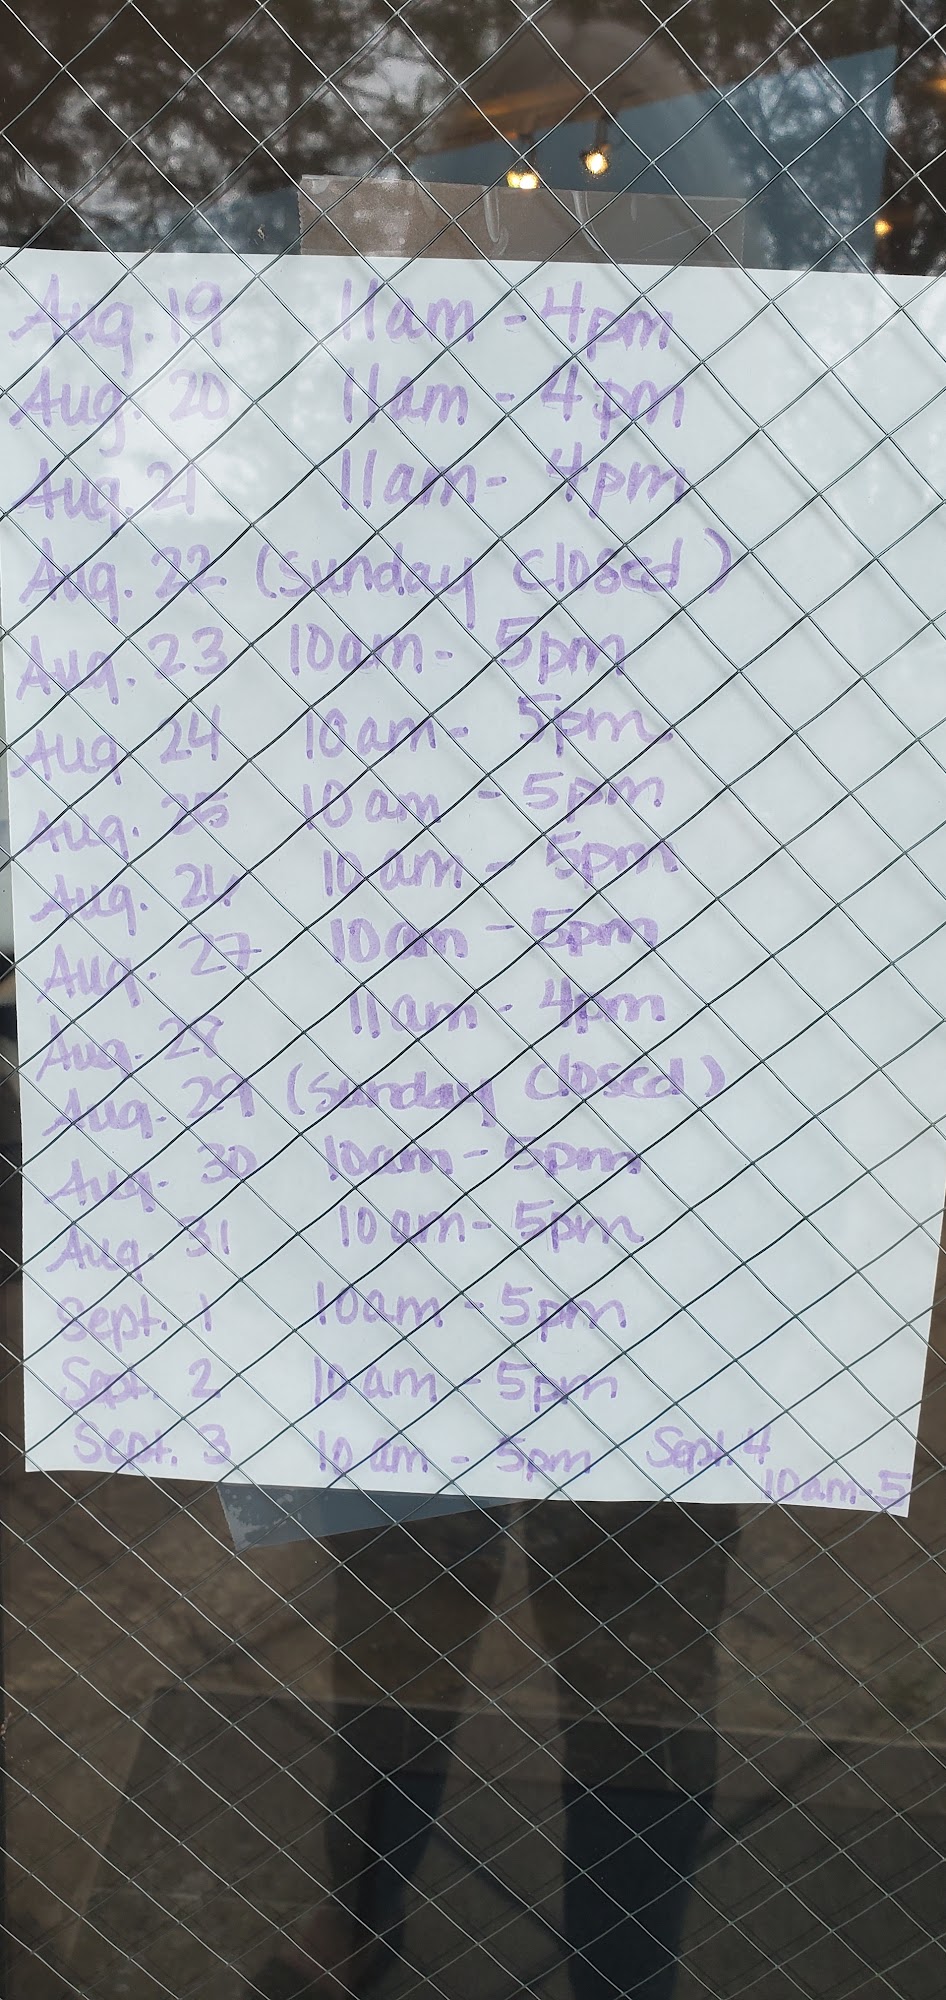 Aug. 19 11am - 4pm
Aug. 20 11am - 4pm
Aug. 21 11am - 4pm
Aug. 22 (Sunday closed)
Aug. 23 10am - 5pm
Aug. 24 10am - 5pm
Aug. 25 10am - 5pm
Aug. 26 10am - 5pm
Aug. 27 10am - 5pm
Aug. 28 11am - 4pm
Aug. 29 (Sunday closed)
Aug. 30 10am - 5pm
Aug. 31 10am - 5pm
Sept. 1 10am - 5pm
Sept. 2 10am - 5pm
Sept. 3 10am - 5pm Sept. 4
10am-5